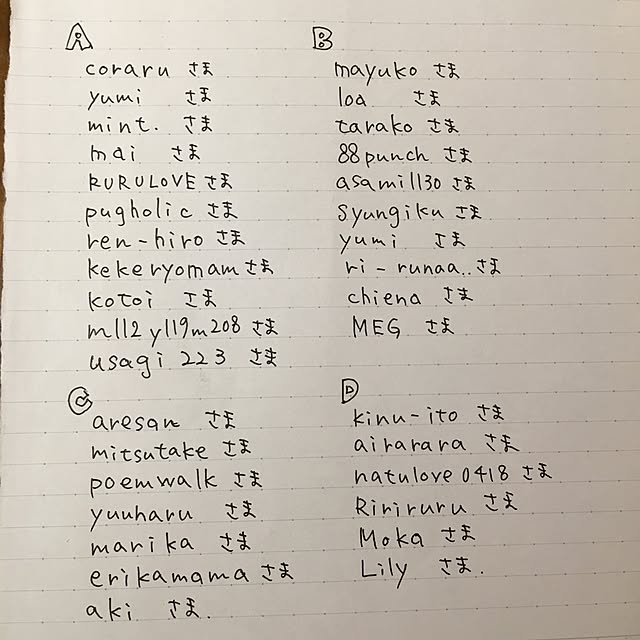 A
coraru さま
yumi さま
mint. さま
mai さま
RURULOVE さま
pugholic さま
ren-hiro さま
kekeryomam さま
kotoi さま
m112y119m208 さま
usagi223 さま
B
mayuko さま
loa さま
tarako さま
88punch さま
asami1130 さま
syungiku さま
yumi さま
ri-runaa.. さま
chiena さま
MEG さま
C
aresan さま
mitsutake さま
poemwalk さま
yuuharu さま
marika さま
erikamama さま
aki さま.
D
kinu-ito さま
airarara さま
natulove0418 さま
Ririruru さま
Moka さま
Lily さま.